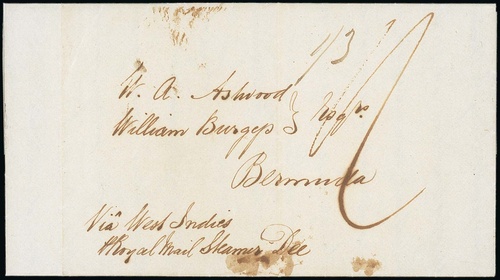 1/3
W. A. Ashwood
William Burgess } Esqrs
Bermuda
Via West Indies
Royal Mail Steamer Dee